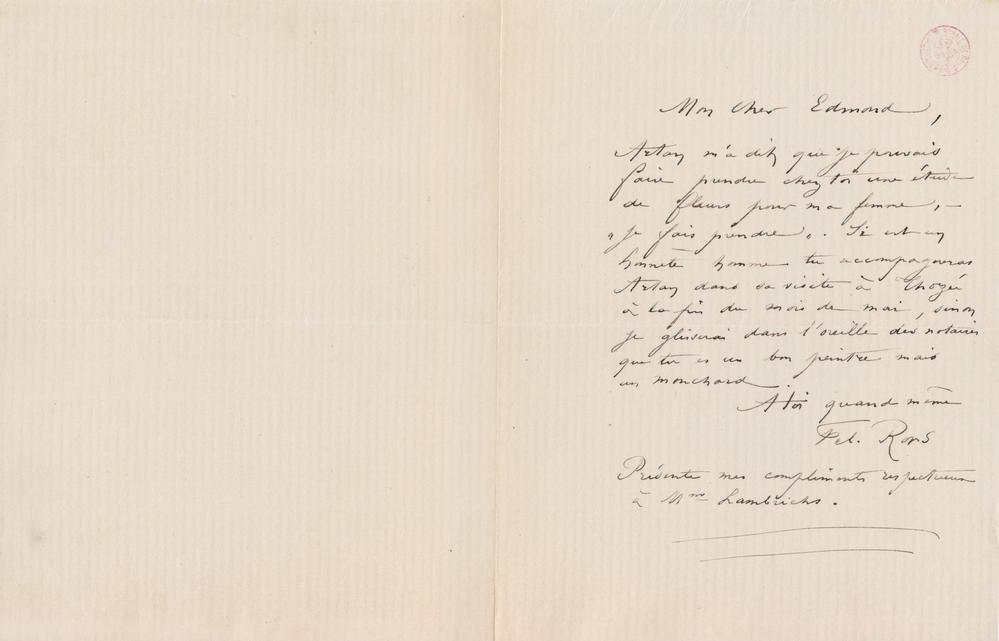 Mon cher Edmond,
Artan m'a dit que je pouvais
faire prendre chez toi une étude
de fleurs pour ma femme, —
"je fais prendre". Si est un
honnête homme tu accompagneras
Artan dans sa visite à Thozée
à la fin du mois de mai, sinon
je glisserai dans l'oreille des notaires
que tu es un bon peintre mais
un mouchard.
A toi quand même
Fél. Rops
Présente mes compliments respectueux
à Mme Lambrichs.